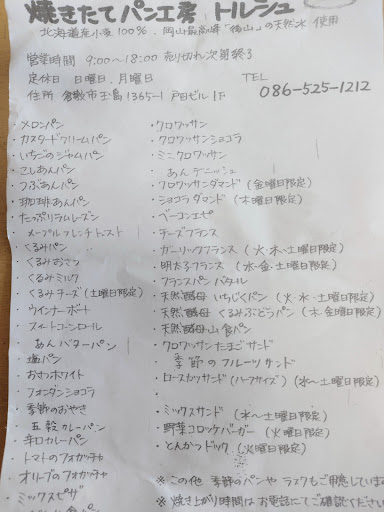 焼きたてパン工房 トルシュ
北海道産小麦100%. 岡山最高峰「後山」の天然水 使用
営業時間 9:00〜18:00 売り切れ次第終了
定休日 日曜日.月曜日
住所 倉敷市玉島1365-1 戸田ビル1F
TEL
086-525-1212
・メロンパン
・カスタードクリームパン
・いちごのジャムパン
・こしあんパン
・つぶあんパン
・珈琲あんパン
・たっぷりラムレーズン
メープルフレンチトースト
・くるみパン
・くるみおさつ
・くるみミルク
・くるみチーズ(土曜日限定)
・ウインナーボート
・スイートコーンロール
・あんバターパン
・塩パン
・おさつホワイト
・フォンダンショコラ
・季節のおやき
・五穀カレーパン
・辛口カレーパン
・トマトのフォカッチャ
・オリーブのフォカッチャ
・ミックスピザ
・クロワッサン
・クロワッサンショコラ
・ミニクロワッサン
・あんデニッシュ
・クロワッサンダマンド(金曜日限定)
・ショコラダマンド(木曜日限定)
・ベーコンエピ
・チーズフランス
・ガーリックフランス(火・木・土曜日限定)
・明太子フランス(水・金・土曜日限定)
・フランスパン バタール
・天然酵母 いちじくパン(火.水.土曜日限定)
・天然酵母 くるみぶどうパン(木.金曜日限定)
・天然酵母山食パン
・クロワッサンたまごサンド
・季節のフルーツサンド
・ロースカツサンド(ハーフサイズ)(水〜土曜日限定)
・ミックスサンド(水〜土曜日限定)
・野菜コロッケバーガー(火曜日限定)
・とんかつドック(火曜日限定)
※この他 季節のパンや ラスクもご用意していま
※焼き上がり時間は お電話にてご確認ください